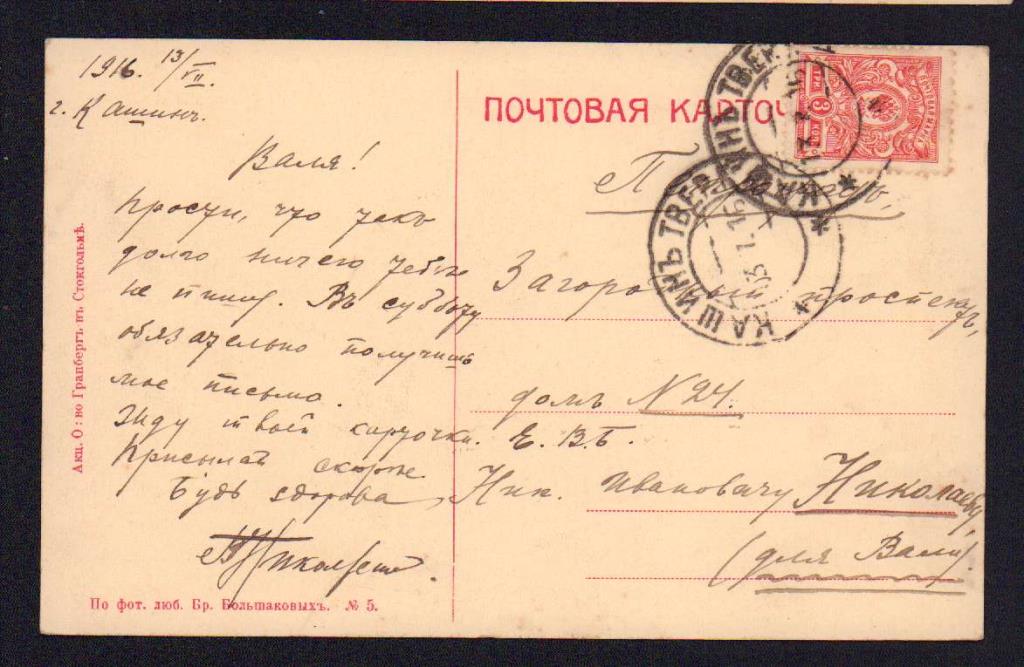 1916. 13/VII
г. Кашинъ.
Валя!
Прости, что такъ
долго ничего тебѣ
не пишу. Въ субботу
обязательно получишь
мое письмо.
Жду твоей карточки.
Присылай скорѣе
Будь здорова,
Николаевъ.
ПОЧТОВАЯ КАРТОЧ
КАШИНЪ ТВЕР
КАШИНЪ ТВЕР
13.7.16
ПОЧТОВАЯ МАРКА
ТРИ 3 КОП
Загородный проспектъ,
домъ №24.
Е. В. Б.
Ник. Ивановичу Николаеву,
(для Вали).
Акц. О: во Гранбергъ въ Стокгольмѣ.
По фот. люб. Бр. Большаковыхъ. № 5.